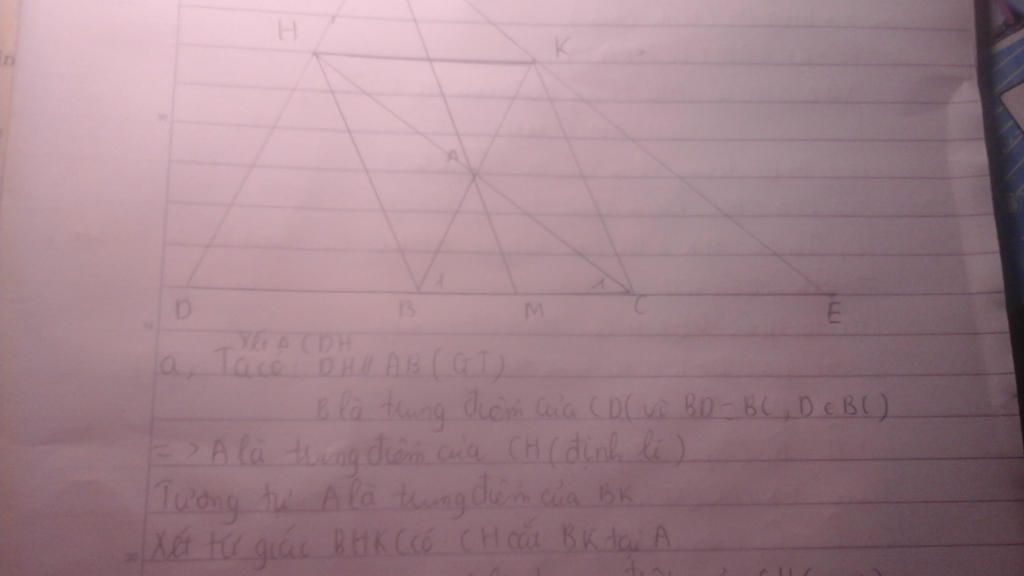 H
K
A
1
1
D
B
M
C
E
Xét Δ CDH
a, Ta có: DH // AB (GT)
B là trung điểm của CD (vì BD = BC, D ∈ BC)
=> A là trung điểm của CH (định lí)
Tương tự A là trung điểm của BK
Xét tứ giác BHKC có CH cắt BK tại A